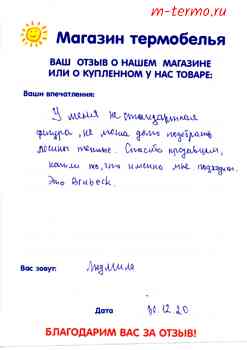 m-termo.ru
Магазин термобелья
ВАШ ОТЗЫВ О НАШЕМ МАГАЗИНЕ
ИЛИ О КУПЛЕННОМ У НАС ТОВАРЕ:
Ваши впечатления:
У меня не стандартная
фигура, не могла долго подобрать
лосины теплые. Спасибо продавцам,
нашли то, что именно мне подходит.
Это
Вас зовут: Людмила
Дата 30.12.20
БЛАГОДАРИМ ВАС ЗА ОТЗЫВ!